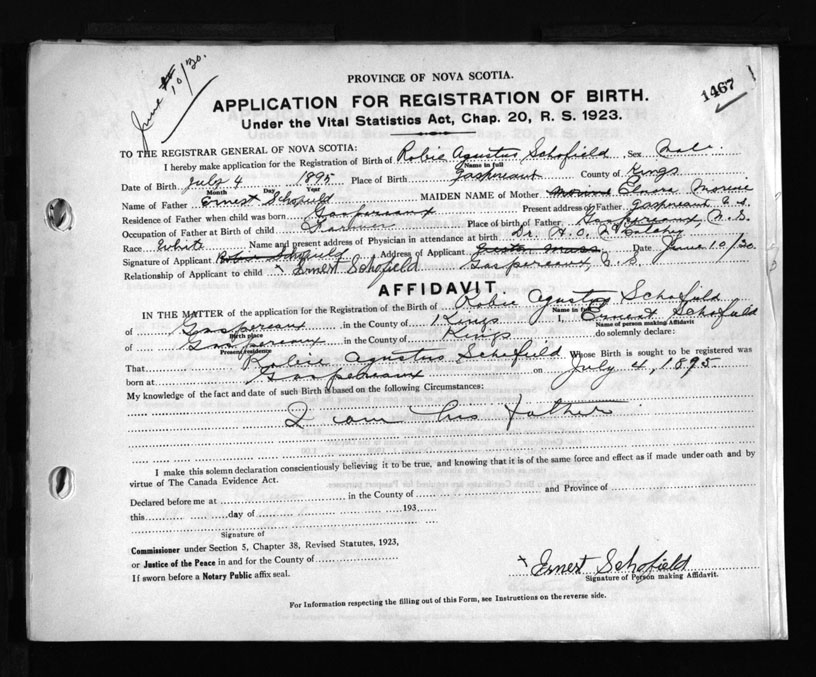 June 10/30.
PROVINCE OF NOVA SCOTIA.
1467
APPLICATION FOR REGISTRATION OF BIRTH.
Under the Vital Statistics Act, Chap. 20, R. S. 1923.
TO THE REGISTRAR GENERAL OF NOVA SCOTIA:
I hereby make application for the Registration of Birth of Robie Agustus Schofield Sex Male
Name in full
Date of Birth July 4 1895 Place of Birth Gaspereaux County of Kings
Month Day Year
Name of Father Ernest Schofield MAIDEN NAME of Mother Elnora Morine
Residence of Father when child was born Gaspereaux Present address of Father Gaspereaux N.S.
Occupation of Father at Birth of child Farmer Place of birth of Father Gaspereaux, N.S.
Race White Name and present address of Physician in attendance at birth Dr. H. O.
Signature of Applicant Robie Schofield Address of Applicant Mass. Date June 10/30
Relationship of Applicant to child x Ernest Schofield Gaspereaux, N.S.
AFFIDAVIT.
IN THE MATTER of the application of the Registration of the Birth of Robie Agustus Schofield
Name in full
of Gaspereaux in the County of Kings I, Ernest Schofield
Birth place Name of person making Affidavit
of Gaspereaux in the County of Kings do solemnly declare:
Present residence
That Robie Agustus Schofield Whose Birth is sought to be registered was
born at Gaspereaux on July 4, 1895
My knowledge of the fact and date of such Birth is based on the following Circumstances:
I am his father
I make this solemn declaration conscientiously believing it to be true, and knowing that it is of the same force and effect as if made under oath and by
virtue of The Canada Evidence Act.
Declared before me at in the County of and Province of
this day of 193
Signature of
Commissioner under Section 5, Chapter 38, Revised Statutes, 1923,
or Justice of the Peace in and for the County of
If sworn before a Notary Public affix seal.
x Ernest Schofield
Signature of Person making Affidavit.
For Information respecting the filling out of this Form, see Instructions on the reverse side.